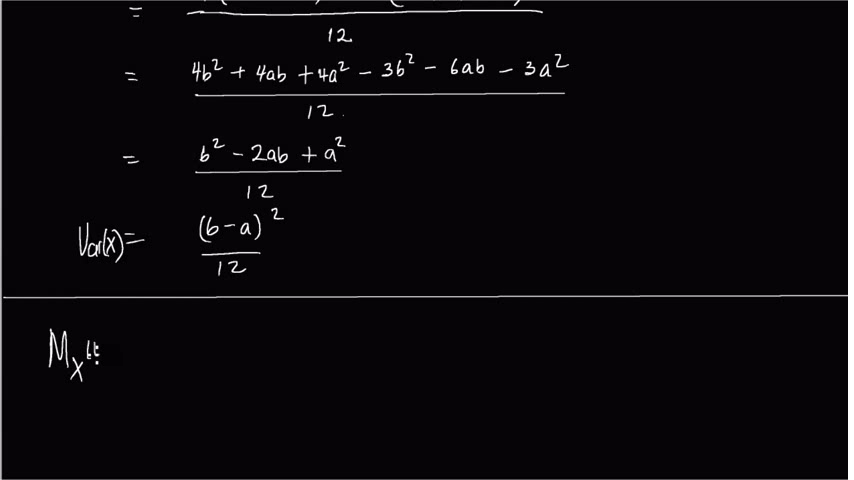 =
12
= 4b² + 4ab + 4a² - 3b² - 6ab - 3a²
12
= b² - 2ab + a²
12
Var(x) = (b-a)²
12
M_X